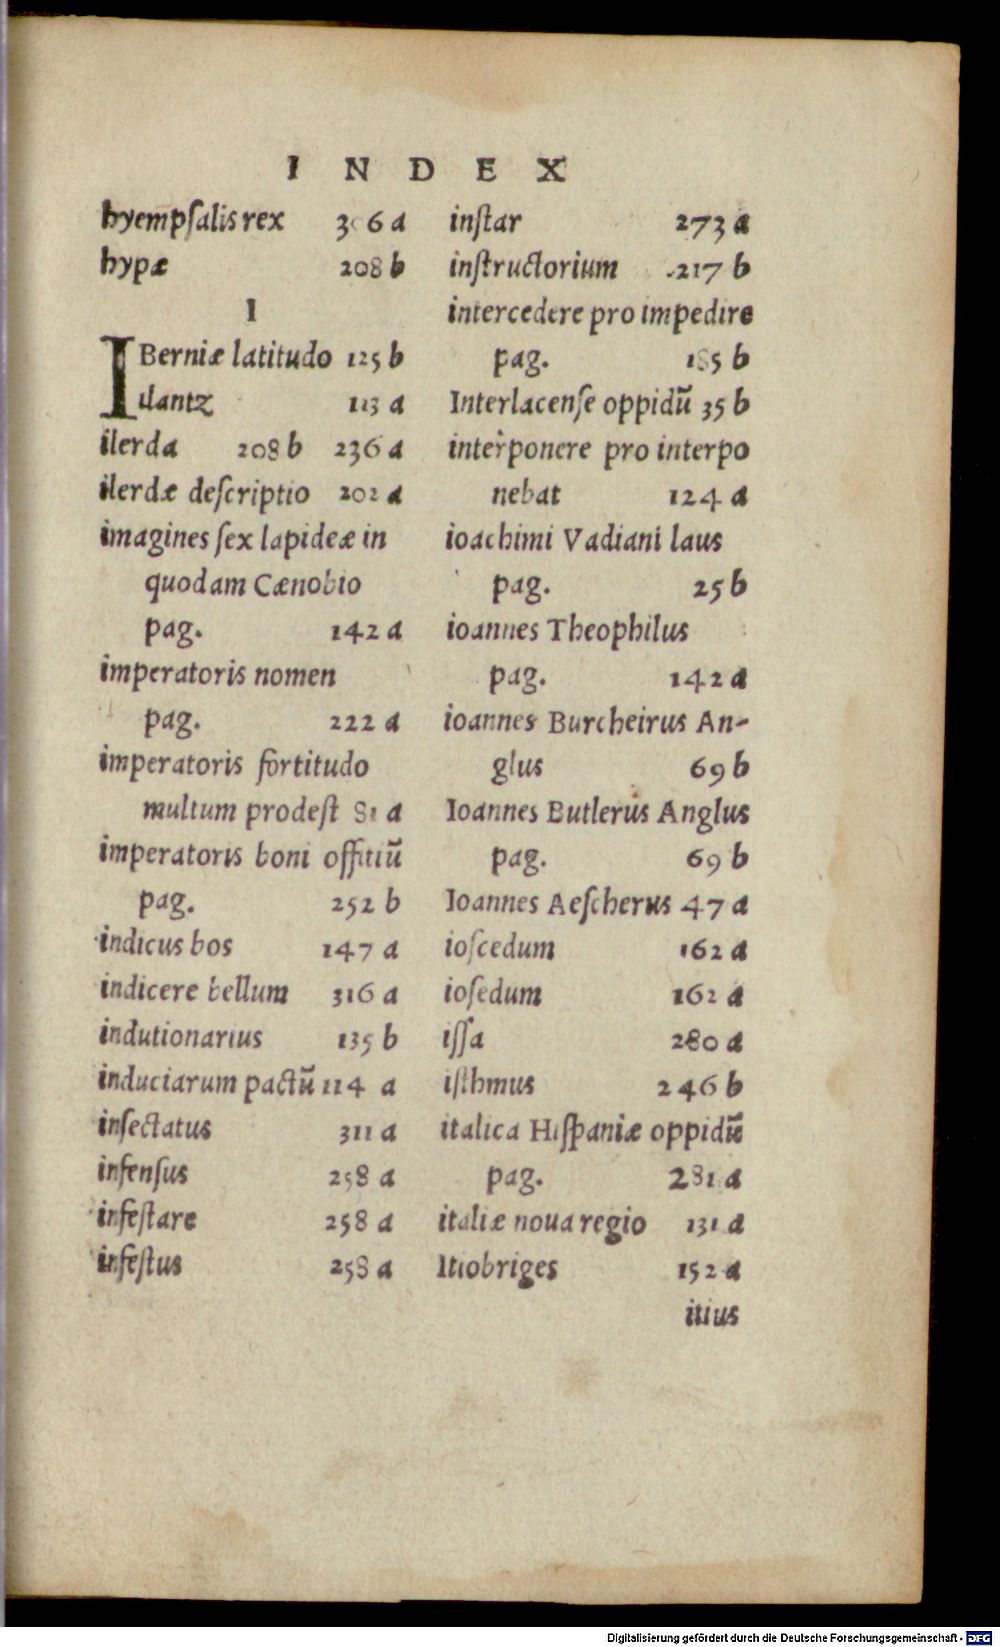 INDEX
hyempſalis rex 306 a
hypæ 208 b
I
IBerniæ latitudo 125 b
ilantz 113 a
ilerda 208 b 236 a
ilerdæ deſcriptio 202 a
imagines ſex lapideæ in
quodam Cænobio
pag. 142 a
imperatoris nomen
pag. 222 a
imperatoris fortitudo
multum prodeſt 81 a
imperatoris boni offitiū
pag. 252 b
indicus bos 147 a
indicere bellum 316 a
indutionarius 135 b
induciarum pactū 114 a
inſectatus 311 a
infenſus 258 a
infeſtare 258 a
infeſtus 258 a
inſtar 273 a
inſtructorium 217 b
intercedere pro impedire
pag. 185 b
Interlacenſe oppidū 35 b
interponere pro interpo
nebat 124 a
ioachimi Vadiani laus
pag. 25 b
ioannes Theophilus
pag. 142 a
ioannes Burcheirus An-
glus 69 b
Ioannes Butlerus Anglus
pag. 69 b
Ioannes Aeſcherus 47 a
ioſcedum 162 a
ioſedum 162 a
iſſa 280 a
iſthmus 246 b
italica Hiſpaniæ oppidū
pag. 281 a
italiæ noua regio 131 a
Itiobriges 152 a
itius
Digitalisierung gefördert durch die Deutsche Forschungsgemeinschaft - DFG